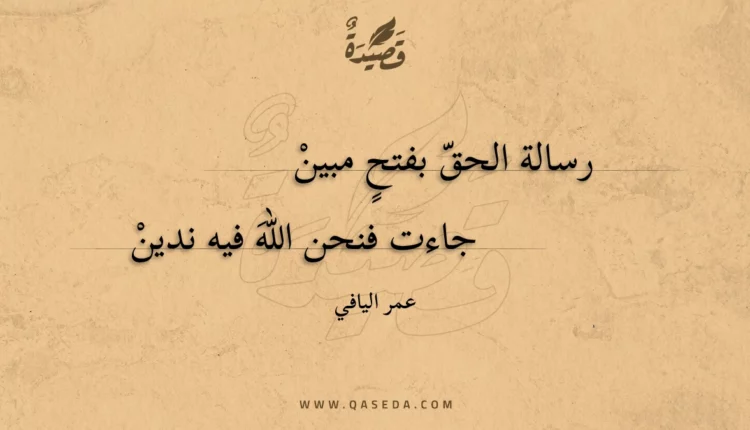 قَصِيْدَةٌ
رسالة الحقّ بفتحٍ مبينْ
جاءت فنحن اللهَ فيه ندينْ
عمر اليافي
WWW.QASEDA.COM